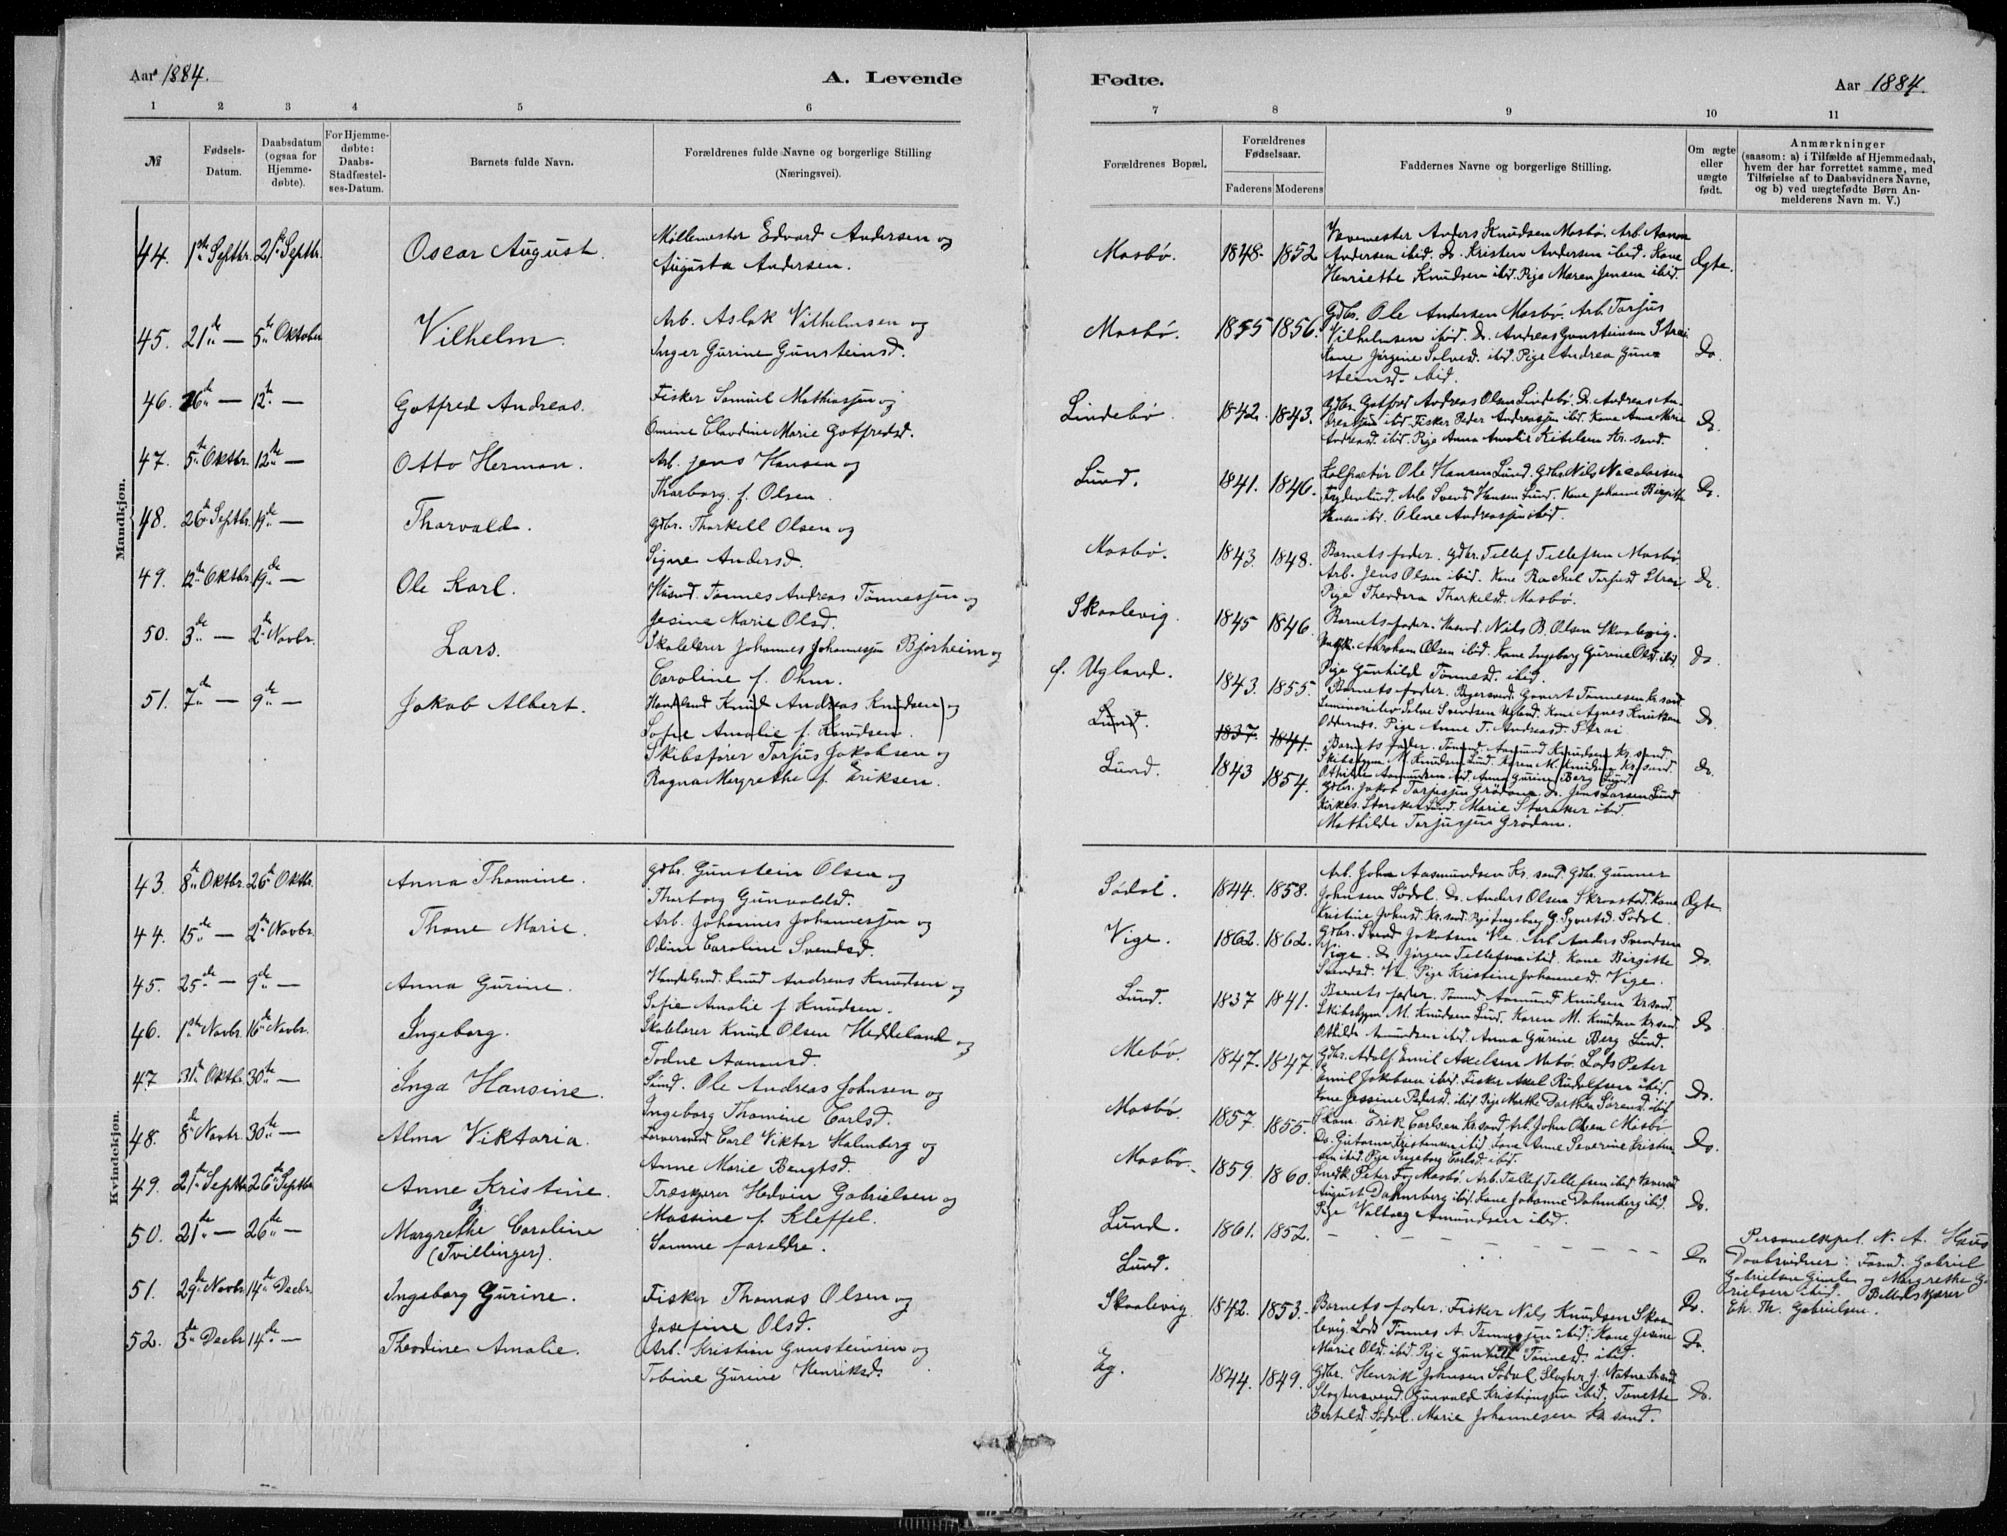 Aar 1884.
A. Levende
Fødte.
Aar 1884.
1 2 3 4 5 6 7 8 9 10 11
№
Fødsels-Datum.
Daabsdatum (ogsaa for Hjemmedøbte).
For Hjemmedøbte: Daabs-Stadfæstelses-Datum.
Barnets fulde Navn.
Forældrenes fulde Navne og borgerlige Stilling
(Næringsvei).
Forældrenes Bopæl.
Forældrenes Fødselsaar.
Faderens Moderens
Faddernes Navne og borgerlige Stilling.
Om ægte eller uægte født.
Anmærkninger
(saasom: a) i Tilfælde af Hjemmedaab,
hvem der har forrettet samme, med
Tilføielse af to Daabsvidners Navne,
og b) ved uægtefødte Børn Anmelderens Navn m. V.)
Mandkjøn.
44. 1ste Septbr. 21de Septbr. Oscar August. Møllemester Edvard Andersen og
Augusta Andersen.
Mosbø. 1848. 1852 Vævemester Anders Knudsen Mosbø. Arb. Aanon
Andersen ibid. Do. Kristen Andersen ibid. Kone
Henriette Knudsen ibid. Pige Maren Jensen ibid. Ægte.
45. 21de — 5te Oktober Vilhelm. Arb. Aslak Vilhelmsen og
Inger Gurine Gunsteinsd.
Mosbø. 1855 1856. Gdbr. Ole Andersen Mosbø. Arb. Tarjus
Vilhelmsen ibid. Do. Andreas Gunsteinsen Strai
Kone Jørgine Salvesd. ibid. Pige Andrea Gunsteinsd. ibid. Do.
46. 26de — 12te — Gotfred Andreas. Fisker Samuel Mathiassen og
Omine Claudine Marie Gotfredsd.
Lindebø. 1842. 1843. Gdbr. Gotfred Andreas Olsen Lindebø. Do. Andreas Andreassen ibid. Fisker Peder Andreassen ibid. Kone Anne Marie
Andreasd. ibid. Pige Anna Amalie Ketelsen Kr.sand. Do.
47. 5te Oktbr. 12te — Otto Herman. Arb. Jens Hansen og
Tharborg f. Olsen.
Lund. 1841. 1846. Ole Hansen Lund. Gdbr. Nils Nicolaisen
Arb. Svend Hansen Lund. Kone Johanne Birgitte
Hansen ibid. Olene Andreassen ibid. Do.
48. 26de Septbr. 19de — Tharvald. Gdbr. Tharkell Olsen og
Signe Andersd.
Mosbø. 1843. 1848. Barnets fader. Gdbr. Tellef Tellefsen Mosbø
Arb. Jens Olsen ibid. Kone Rachel Tarjusd. Strai
Pige Theodora Tharkelsd. Mosbø. Do.
49. 12te Oktbr. 19de — Ole Karl. Husmd. Tønnes Andreas Tønnessen og
Jesine Marie Olsd.
Skaalevig. 1845 1846. Barnets fader. Husmd. Nils B. Olsen Skaalevig.
Abraham Olsen ibid. Kone Ingeborg Gurine Olsd. ibid
Pige Gunhild Tønnesd. ibid. Do.
50. 3de — 2den Novbr. Lars. Skolelærer Johannes Johannessen Bjorheim og
Caroline f. Ohm.
f. Ugland. 1843. 1855. Barnets fader. Govert Tønnesen Kr.sand.
Salve Svendsen Ugland. Kone Agnes Knutson
Oddernes. Pige Anne T. Andreasd. Strai Do.
51. 7de — 9de — Jakob Albert. Handelsmd Knud Andreas Knudsen og
Sofie Amalie f. Knudsen.
Lund. 1837. 1841. Barnets fader. Tømmd. Aamund Knudsen Kr.sand.
Skibstym. M. Knudsen Lund. Karen M. Knudsen Kr.sand.
Othilde Aamundsen ibid. Anna Gurine Berg Lund.
Skibsfører Tarjus Jakobsen og
Ragna Margrethe f. Eriksen.
Lund. 1843 1854. Gdbr. Jakob Tarjussen Grødam. Do. Jens Larsen Lund
Storaker Lund. Marie Storaker ibid.
Mathilde Tarjussen Grødam. Do.
Kvindekjøn.
43. 8de Oktbr. 26de Oktbr. Anna Thomine. Gdbr. Gunstein Olsen og
Tharborg Gunvaldsd.
Sødal. 1844. 1858. Arb. John Aasmundsen Kr.sand. Gdbr. Gunner
Johnsen Sødal. Do. Anders Olsen Skraastad. Kone
Kristine Johnsd. Kr.sand. Pige Ingeborg G. Syvertsd. Sødal. Ægte
44. 15de — 2den Novbr. Thone Marie. Arb. Johannes Johannessen og
Odine Caroline Svendsd.
Vige. 1862. 1862. Gdbr. Svend Jakobsen Ve. Arb. Anders Svendsen
Vige. Do. Jørgen Tellefsen ibid. Kone Birgitte
Svendsd. Ve. Pige Kristine Johannesd. Vige. Do.
45. 25de — 9de — Anna Gurine. Handelsmd. Knud Andreas Knudsen og
Sofie Amalie f. Knudsen.
Lund. 1837 1841. Barnets fader. Tømmd. Aamund Knudsen Kr.sand.
Skibstym. M. Knudsen Lund. Karen M. Knudsen Kr.sand.
Othilde Amundsen ibid. Anna Gurine Berg Lund. Do
46. 1ste Novbr. 16de Novbr. Ingeborg. Skolelærer Knud Olsen Heddeland og
Todne Aanonsd.
Mebø. 1847. 1847. Gdbr. Adolf Emil Axelsen Mebø. Lods Peter
Emil Jakobsen ibid. Fisker Axel Rudolfsen ibid.
Kone Jessine Pedersd. ibid. Pige Marthe Dorthea Sørensd. ibid Do.
47 31te Oktbr. 30te — Inga Hansine. Sømd. Ole Andreas Johnsen og
Ingeborg Thomine Carlsd.
Mosbø. 1857. 1855. Erik Carlsen Kr.sand. Arb. John Olsen Mosbø
Do. Gutorm Kristensen ibid. Kone Anne Severine Kristensen ibid. Pige Ingeborg Carlsd. ibid. Do.
48. 8de Novbr. 30te — Alma Viktoria. Farversvend Carl Viktor Malmberg og
Anne Marie Bengtsd.
Mosbø. 1859. 1860. Snedk. Peter Foss Mosbø. Arb. Tellef Tellefsen ibid.
August Dahmberg ibid. Kone Johanne Dahmberg ibid.
Pige Valborg Amundsen ibid. Do.
49. 21de Septbr. 26de Septbr. Anne Kristine. Træskjærer Hedvin Gabrielsen og
Massine f. Kleffel.
Lund. 1861. 1852. — — — — Do.
50. 21de — 26de — og Margrethe Caroline
(Tvillinger). Samme forældre.
Lund. Do.
Personelkapel. N. A. Haus
Daabsvidner: Farmd. Gabriel
Gabrielsen Gimle og Margrethe Gabrielsen ibid. Billedskjærer
Ch. Th. Gabrielsen.
51. 29de Novbr. 14de Decbr. Ingeborg Gurine. Fisker Thomas Olsen og
Josefine Olsd.
Skaalevig. 1842. 1853. Barnets fader. Fisker Nils Knudsen Skaalevig. Lods Tønnes A. Tønnessen ibid. Kone Jesine
Marie Olsd. ibid. Pige Gunhild Tønnesd. ibid. Do.
52. 3de Decbr 14de — Theodine Amalie. Arb. Kristian Gunsteinsen og
Tobine Gurine Henriksd.
Eg. 1844. 1849. Gdbr. Henrik Johnsen Sødal. Slagter J. Natne
Slagtersvend Gunvald Kristiansen ibid. Tonette
Bertelsd. Sødal. Marie Johannesen Kr.sand. Do.